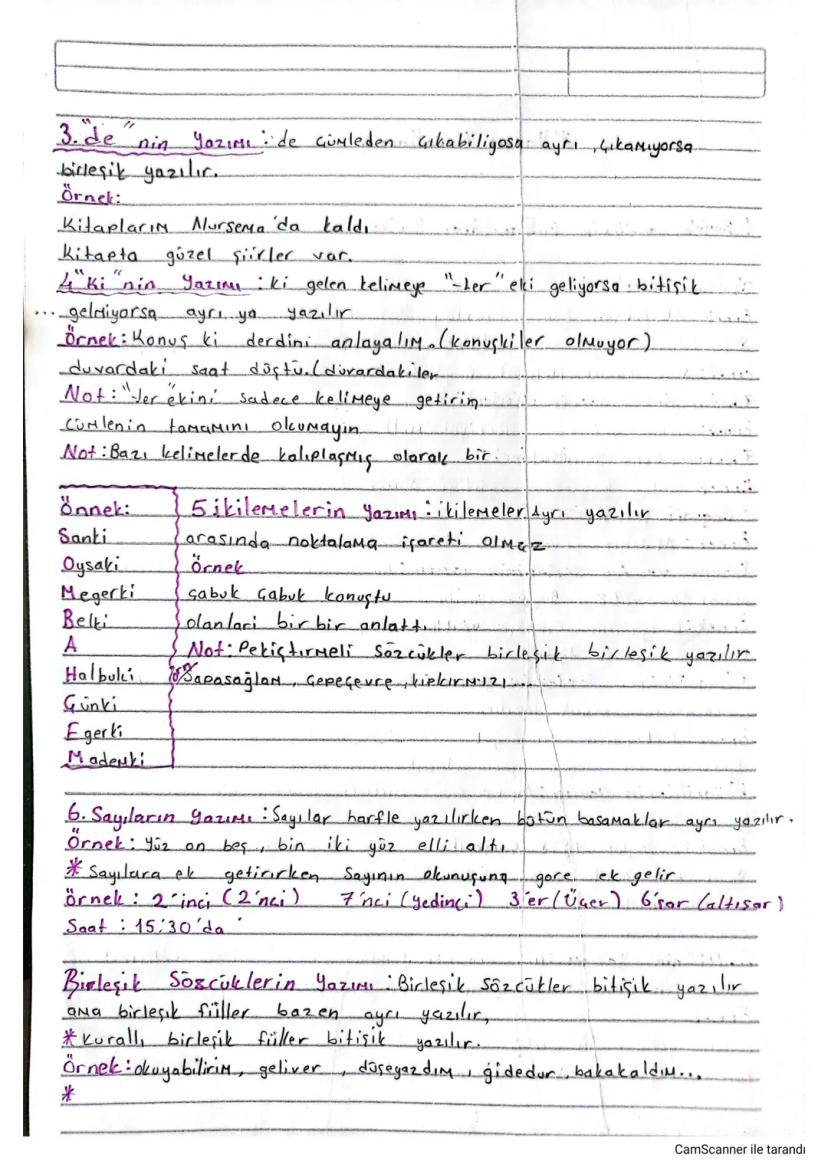 3."de" nin Yazımı : de cümleden çıkabiliyosa ayrı, çıkamıyorsa
birleşik yazılır.
Örnek:
Kitaplarım Nursema'da kaldı
Kitapta güzel şiirler var.
4"Ki"nin Yazımı : ki gelen kelimeye "-ler" eki geliyorsa bitişik
gelmiyorsa ayrı ya yazılır
Örnek: Konuş ki derdini anlayalım. (konuşkiler olmuyor)
duvardaki saat düştü. (duvardakiler
Not: "ler" ekini sadece kelimeye getirin
cümlenin tamamını okumayın
Not: Bazı kelimelerde kalıplaşmış olarak bir
Önnek:
Sanki
Oysaki
Megerki
Belki
A
Halbuki
Günki
Egerki
Mademki
5 ikilemelerin Yazımı : ikilemeler Ayrı yazılır
arasında noktalama işareti olmaz
Örnek
çabuk çabuk konuştu
olanlari bir bir anlattı
Not: Pekiştirmeli Sözcükler birleşik birleşik yazılır
Sapasağlam, çepeçevre, kıpkırmızı...
6. Sayıların Yazımı : Sayılar harfle yazılırken bütün basamaklar ayrı yazılır.
Örnek: Yüz on beş, bin iki yüz elli altı
* Sayılara ek getirirken Sayının okunuşuna gore ek gelir
örnek : 2'inci (2'nci) 7'nci (yedinçi) 3'er (Üçer) 6'şar (altışar)
Saat : 15:30'da
Birleşik Sözcüklerin Yazımı : Birleşik sözcükler bitişik yazılır
ama birleşik fiiller bazen ayrı yazılır,
* Kurallı birleşik fiiller bitişik yazılır.
Örnek: okuyabilirim, geliver, düşeyazdım, gidedur, bakakaldım...
*
CamScanner ile tarandı